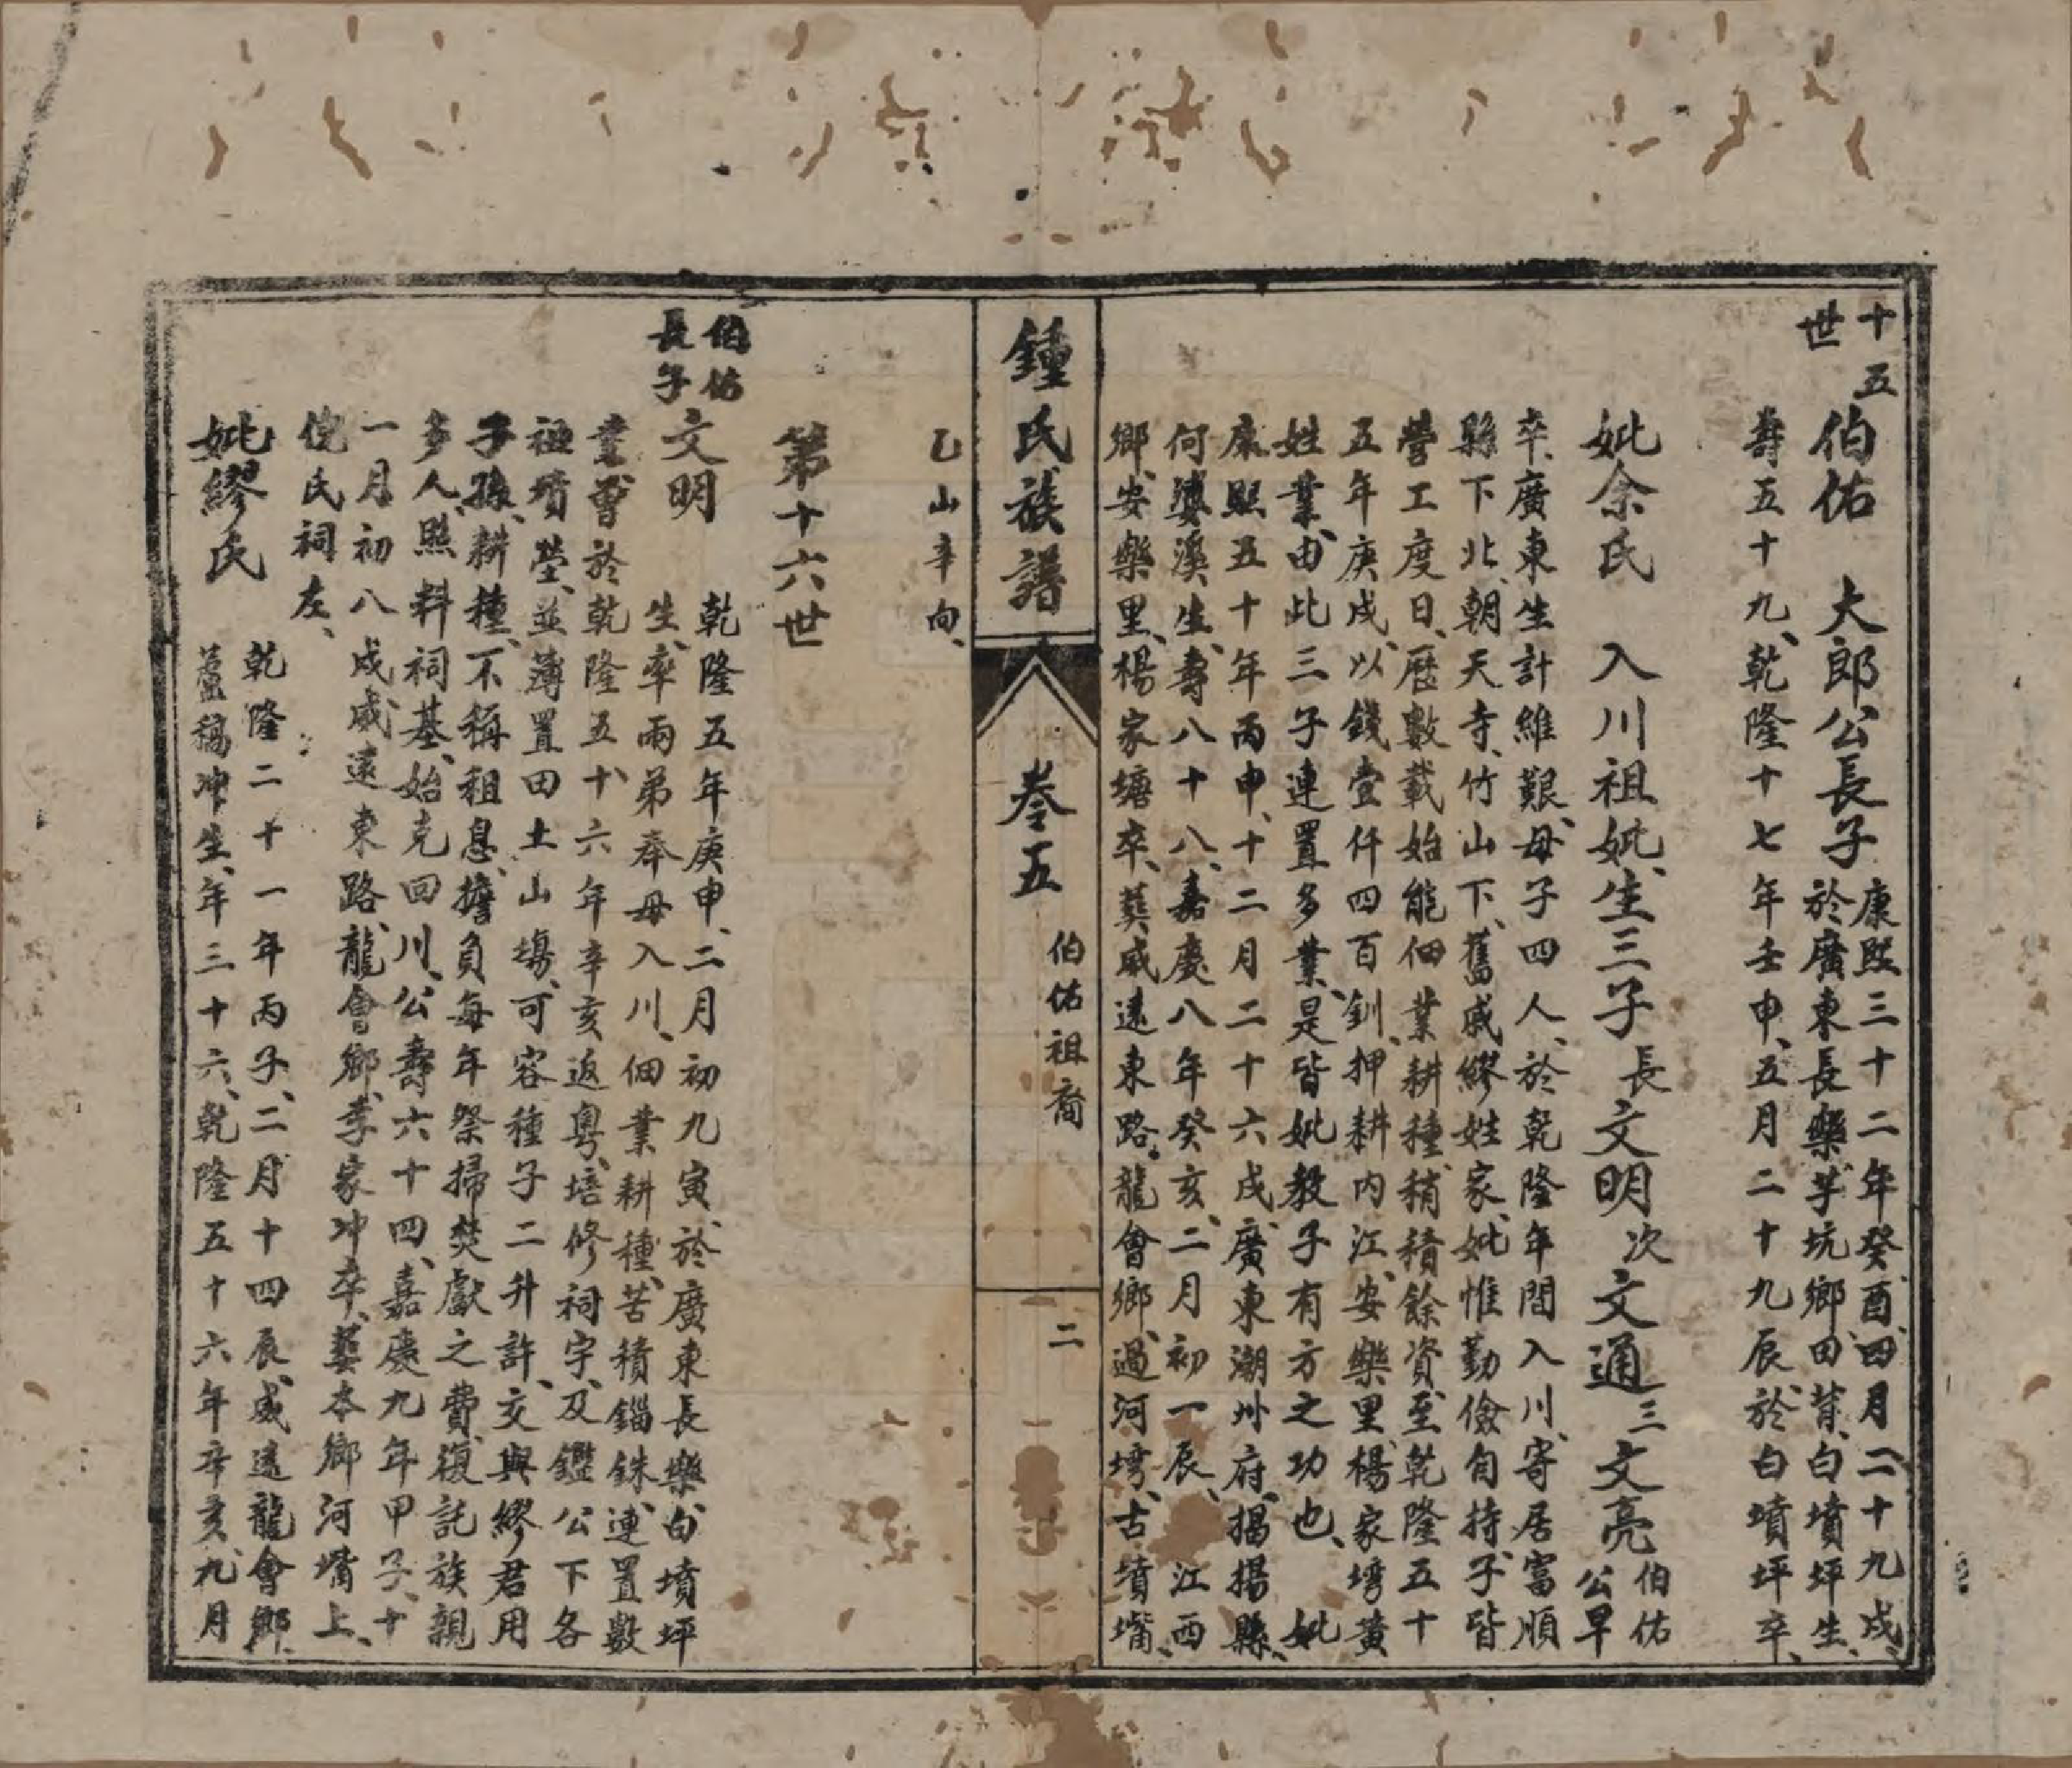 十五世
伯佑　大郎公長子康熙三十二年癸酉、四月二十九戌、
於廣東長樂、芋坑鄉、田背、白墳坪生、
壽五十九、乾隆十七年壬申、五月二十九辰、於白墳坪卒、
妣余氏　入川祖妣、生三子長文明次文通三文亮伯佑
公早
卒、廣東生計維艱、母子四人、於乾隆年間入川、寄居富順
縣下北、朝天寺、竹山下、舊戚繆姓家、妣惟勤儉自持、子皆
營工度日、歷數載始能佃業耕種、稍積餘資、至乾隆五十
五年庚戌、以錢壹仟四百釧、押耕內江、安樂里、楊家塆黃
姓業、由此三子連置多業、是皆妣教子有方之功也、　妣
康熙五十年丙申、十二月二十六戌、廣東潮州府、揭揚縣、
何婆溪生、壽八十八、嘉慶八年癸亥、二月初一辰、　江西
鄉、安樂里、楊家塘卒、葬威遠東路、龍會鄉、過河塆、古墳嘴、
鍾氏族譜
卷五
伯佑祖裔
二
乙山辛向、
第十六世
伯佑
長子
文明　乾隆五年庚申、二月初九寅、於廣東長樂、白墳坪
生、率兩弟奉母入川、佃業耕種、苦積錙銖、連置數
業、曾於乾隆五十六年辛亥返粵、培修祠宇、及鑑公下各
祖墳塋、並薄置田土山塲、可容種子二升許、交與繆君用
子孫、耕種、不稱租息、擔負每年祭掃焚獻之費、復託族親
多人、照料祠基、始克回川、公壽六十四、嘉慶九年甲子、十
一月初八戌、威遠東路、龍會鄉、李家冲卒、葬本鄉河嘴上、
倪氏祠左、
妣繆氏　乾隆二十一年丙子、二月十四辰、威遠龍會鄉、
藁稿冲生、年三十六、乾隆五十六年辛亥、九月